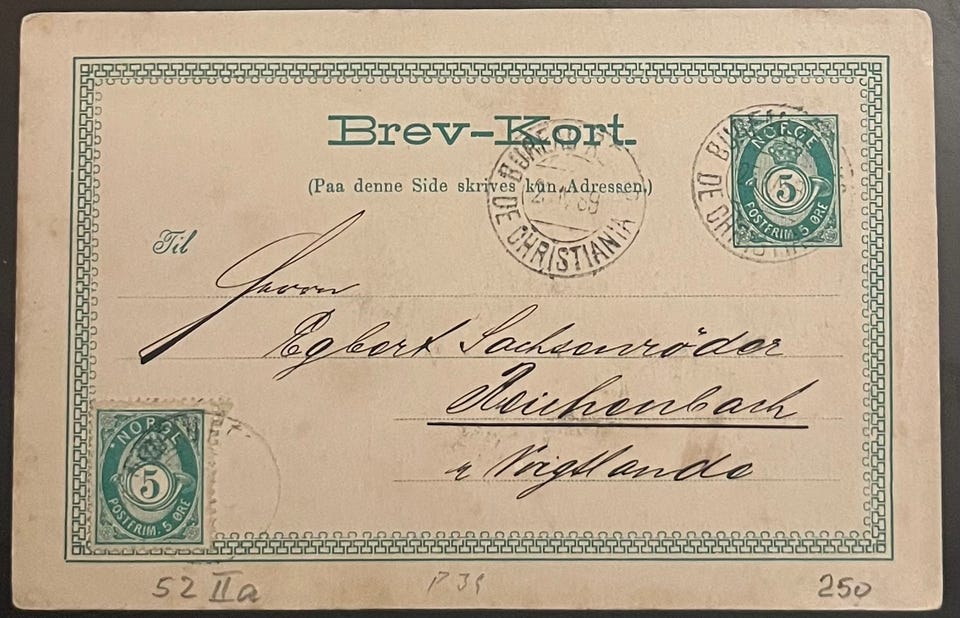 Brev-Kort.
(Paa denne Side skrives kun Adressen.)
BUREAU
DE CHRISTIANIA
BUREAU
DE CHRISTIANIA
NORGE
5
POSTFRIM. 5 ØRE
Til
Herrn
Egbert Sachsenröder
Reichenbach
Voigtlande
NORGE
5
POSTFRIM. 5 ØRE
52 IIa
P 39
250